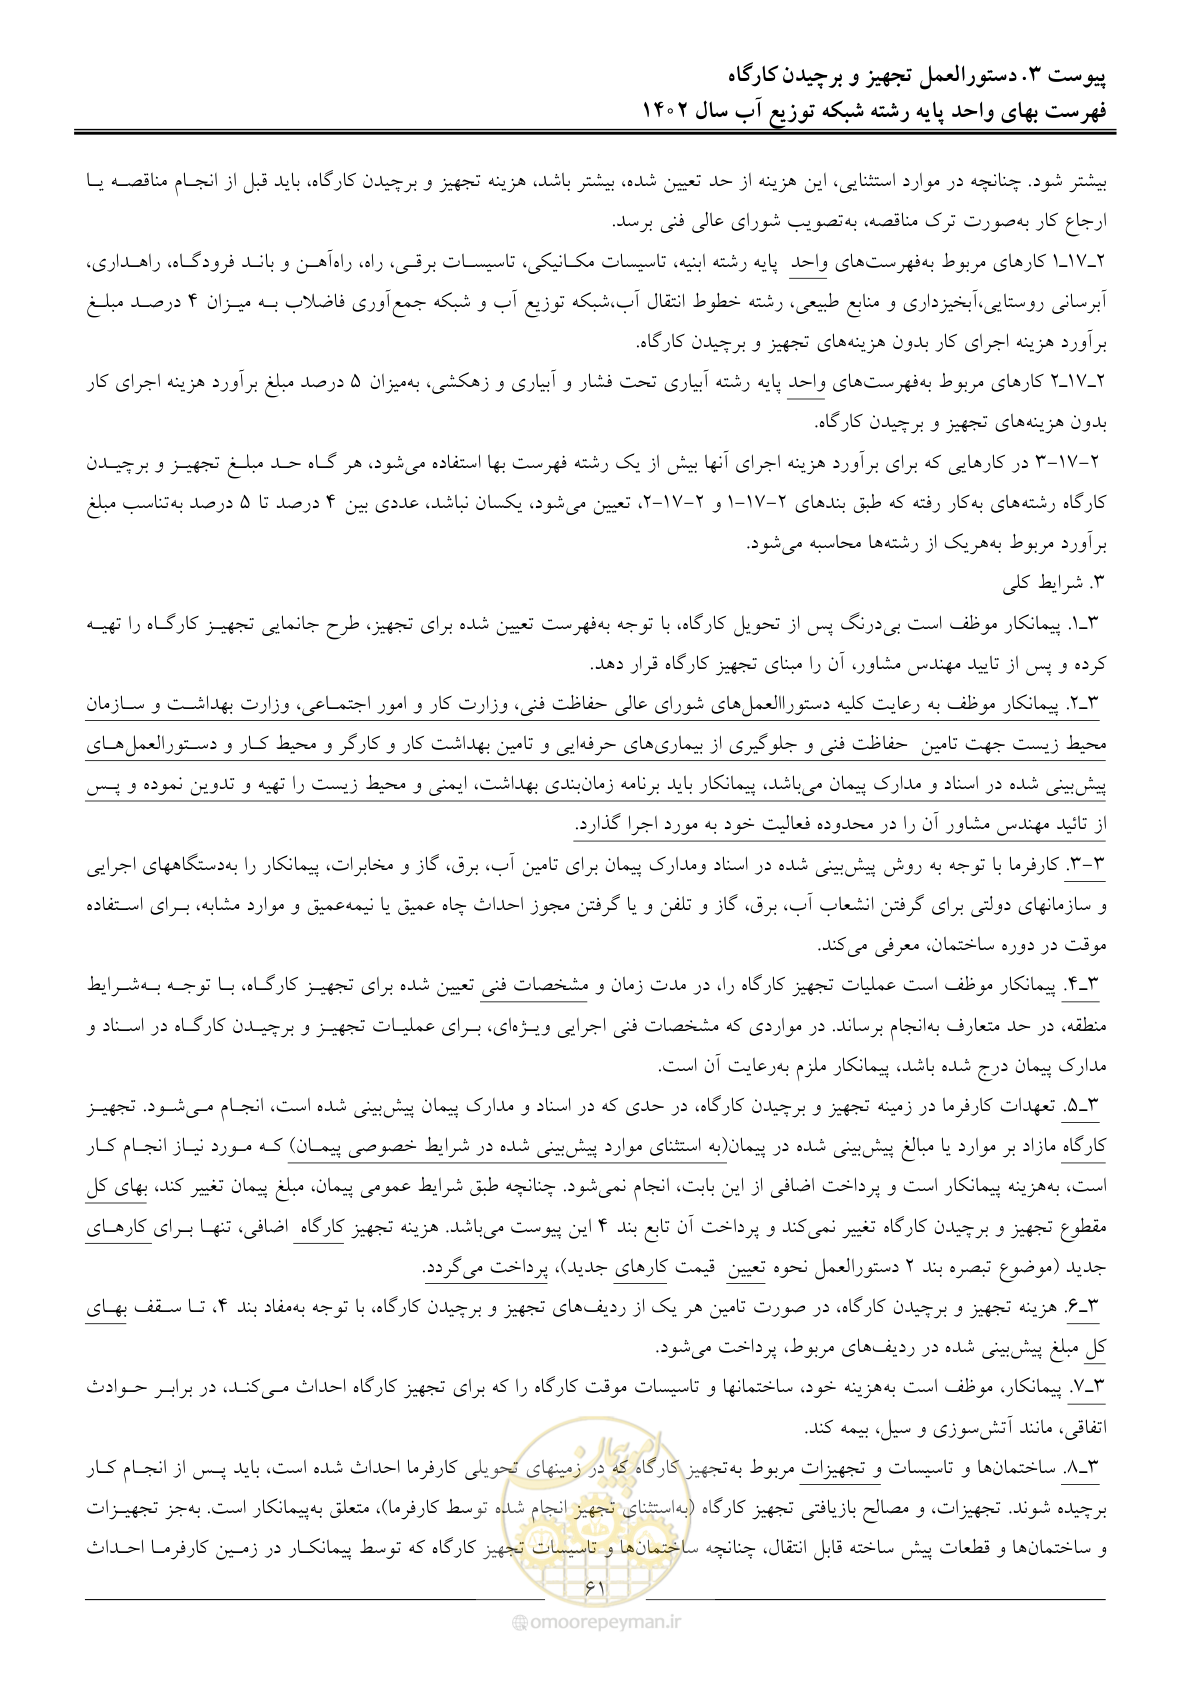 پیوست ۳. دستورالعمل تجهیز و برچیدن کارگاه
فهرست بهای واحد پایه رشته شبکه توزیع آب سال ۱۴۰۲
بیشتر شود. چنانچه در موارد استثنایی، این هزینه از حد تعیین شده، بیشتر باشد، هزینه تجهیز و برچیدن کارگاه، باید قبل از انجام مناقصه یا
ارجاع کار به‌صورت ترک مناقصه، به‌تصویب شورای عالی فنی برسد.
۲ـ۱۷ـ۱ کارهای مربوط به‌فهرست‌های واحد پایه رشته ابنیه، تاسیسات مکانیکی، تاسیسات برقی، راه، راه‌آهن و باند فرودگاه، راهداری،
آبرسانی روستایی،آبخیزداری و منابع طبیعی، رشته خطوط انتقال آب،شبکه توزیع آب و شبکه جمع‌آوری فاضلاب به میزان ۴ درصد مبلغ
برآورد هزینه اجرای کار بدون هزینه‌های تجهیز و برچیدن کارگاه.
۲ـ۱۷ـ۲ کارهای مربوط به‌فهرست‌های واحد پایه رشته آبیاری تحت فشار و آبیاری و زهکشی، به‌میزان ۵ درصد مبلغ برآورد هزینه اجرای کار
بدون هزینه‌های تجهیز و برچیدن کارگاه.
۲-۱۷-۳ در کارهایی که برای برآورد هزینه اجرای آنها بیش از یک رشته فهرست بها استفاده می‌شود، هر گاه حد مبلغ تجهیز و برچیدن
کارگاه رشته‌های به‌کار رفته که طبق بندهای ۲-۱۷-۱ و ۲-۱۷-۲، تعیین می‌شود، یکسان نباشد، عددی بین ۴ درصد تا ۵ درصد به‌تناسب مبلغ
برآورد مربوط به‌هریک از رشته‌ها محاسبه می‌شود.
۳. شرایط کلی
۳ـ۱. پیمانکار موظف است بی‌درنگ پس از تحویل کارگاه، با توجه به‌فهرست تعیین شده برای تجهیز، طرح جانمایی تجهیز کارگاه را تهیه
کرده و پس از تایید مهندس مشاور، آن را مبنای تجهیز کارگاه قرار دهد.
۳ـ۲. پیمانکار موظف به رعایت کلیه دستوراالعمل‌های شورای عالی حفاظت فنی، وزارت کار و امور اجتماعی، وزارت بهداشت و سازمان
محیط زیست جهت تامین حفاظت فنی و جلوگیری از بیماری‌های حرفه‌ایی و تامین بهداشت کار و کارگر و محیط کار و دستورالعمل‌های
پیش‌بینی شده در اسناد و مدارک پیمان می‌باشد، پیمانکار باید برنامه زمان‌بندی بهداشت، ایمنی و محیط زیست را تهیه و تدوین نموده و پس
از تائید مهندس مشاور آن را در محدوده فعالیت خود به مورد اجرا گذارد.
۳-۳. کارفرما با توجه به روش پیش‌بینی شده در اسناد ومدارک پیمان برای تامین آب، برق، گاز و مخابرات، پیمانکار را به‌دستگاههای اجرایی
و سازمانهای دولتی برای گرفتن انشعاب آب، برق، گاز و تلفن و یا گرفتن مجوز احداث چاه عمیق یا نیمه‌عمیق و موارد مشابه، برای استفاده
موقت در دوره ساختمان، معرفی می‌کند.
۳ـ۴. پیمانکار موظف است عملیات تجهیز کارگاه را، در مدت زمان و مشخصات فنی تعیین شده برای تجهیز کارگاه، با توجه به‌شرایط
منطقه، در حد متعارف به‌انجام برساند. در مواردی که مشخصات فنی اجرایی ویژه‌ای، برای عملیات تجهیز و برچیدن کارگاه در اسناد و
مدارک پیمان درج شده باشد، پیمانکار ملزم به‌رعایت آن است.
۳ـ۵. تعهدات کارفرما در زمینه تجهیز و برچیدن کارگاه، در حدی که در اسناد و مدارک پیمان پیش‌بینی شده است، انجام می‌شود. تجهیز
کارگاه مازاد بر موارد یا مبالغ پیش‌بینی شده در پیمان(به استثنای موارد پیش‌بینی شده در شرایط خصوصی پیمان) که مورد نیاز انجام کار
است، به‌هزینه پیمانکار است و پرداخت اضافی از این بابت، انجام نمی‌شود. چنانچه طبق شرایط عمومی پیمان، مبلغ پیمان تغییر کند، بهای کل
مقطوع تجهیز و برچیدن کارگاه تغییر نمی‌کند و پرداخت آن تابع بند ۴ این پیوست می‌باشد. هزینه تجهیز کارگاه اضافی، تنها برای کارهای
جدید (موضوع تبصره بند ۲ دستورالعمل نحوه تعیین قیمت کارهای جدید)، پرداخت می‌گردد.
۳ـ۶. هزینه تجهیز و برچیدن کارگاه، در صورت تامین هر یک از ردیف‌های تجهیز و برچیدن کارگاه، با توجه به‌مفاد بند ۴، تا سقف بهای
کل مبلغ پیش‌بینی شده در ردیف‌های مربوط، پرداخت می‌شود.
۳ـ۷. پیمانکار، موظف است به‌هزینه خود، ساختمانها و تاسیسات موقت کارگاه را که برای تجهیز کارگاه احداث می‌کند، در برابر حوادث
اتفاقی، مانند آتش‌سوزی و سیل، بیمه کند.
۳ـ۸. ساختمان‌ها و تاسیسات و تجهیزات مربوط به‌تجهیز کارگاه که در زمینهای تحویلی کارفرما احداث شده است، باید پس از انجام کار
برچیده شوند. تجهیزات، و مصالح بازیافتی تجهیز کارگاه (به‌استثنای تجهیز انجام شده توسط کارفرما)، متعلق به‌پیمانکار است. به‌جز تجهیزات
و ساختمان‌ها و قطعات پیش ساخته قابل انتقال، چنانچه ساختمان‌ها و تاسیسات تجهیز کارگاه که توسط پیمانکار در زمین کارفرما احداث
امور پیمان
۶۱
omoorepeyman.ir